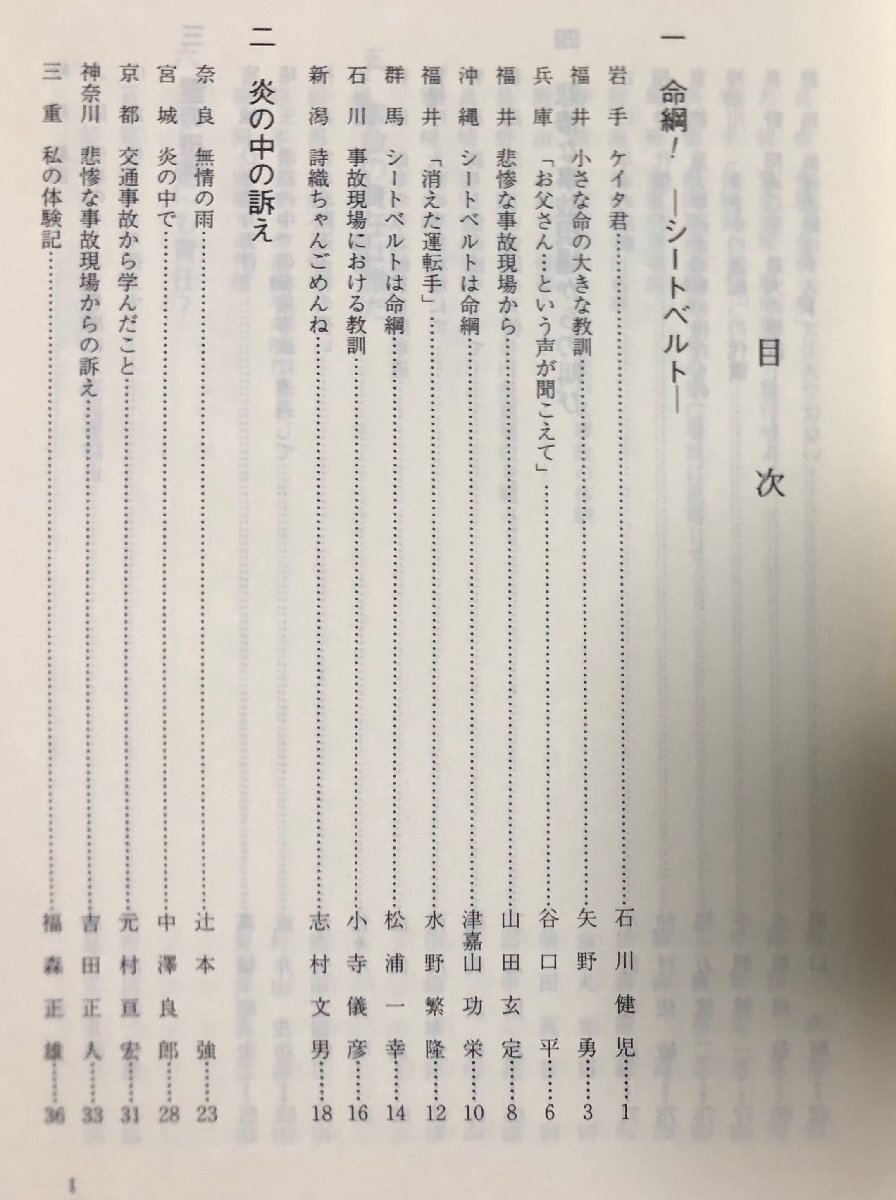 目次
一 命綱！ ―シートベルト―
岩手 ケイタ君……石川健児……1
福井 小さな命の大きな教訓……矢野勇……3
兵庫 「お父さん…という声が聞こえて」……谷口平……6
福井 悲惨な事故現場から……山田玄定……8
沖縄 シートベルトは命綱……津嘉山功栄……10
福井 「消えた運転手」……水野繁隆……12
群馬 シートベルトは命綱……松浦一幸……14
石川 事故現場における教訓……小寺儀彦……16
新潟 詩織ちゃんごめんね……志村文男……18
二 炎の中の訴え
奈良 無情の雨……辻本強……23
宮城 炎の中で……中澤良郎……28
京都 交通事故から学んだこと……元村亘宏……31
神奈川 悲惨な事故現場からの訴え……吉田正人……33
三重 私の体験記……福森正雄……36
1